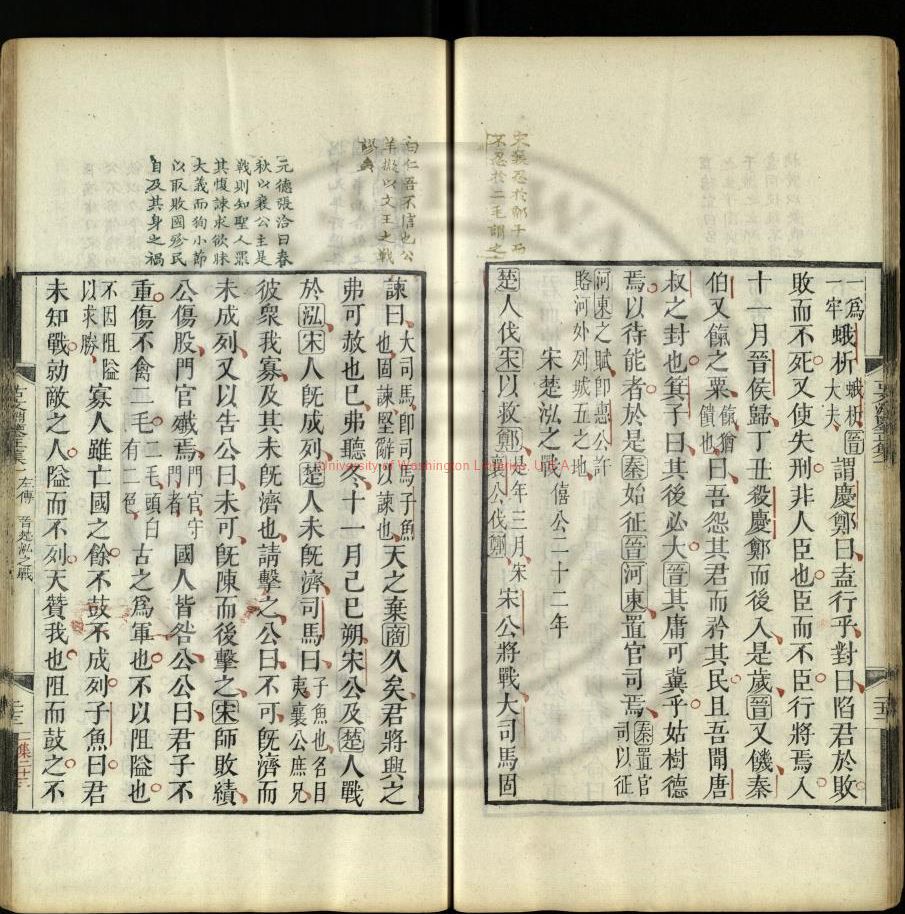 宋襄忍於鄫子而
不忍於二毛謂之
一爲
一牢蛾析蛾析晉
大夫謂慶鄭曰盍行乎對曰陷君於敗
敗而不死又使失刑非人臣也臣而不臣行將焉入
十一月晉侯歸丁丑殺慶鄭而後入是歲晉又饑秦
伯又餼之粟餼猶
饋也曰吾怨其君而矜其民且吾聞唐
叔之封也箕子曰其後必大晉其庸可冀乎姑樹德
焉以待能者於是秦始征晉河東置官司焉秦置官
司以征
河東之賦卽惠公許
賂河外列城五之地
宋楚泓之戰僖公二十二年
楚人伐宋以救鄭是年三月宋
襄公伐鄭宋公將戰大司馬固
諫曰大司馬卽司馬子魚
也固諫堅辭以諫也天之棄商久矣君將興之
弗可赦也已弗聽冬十一月己巳朔宋公及楚人戰
於泓宋人旣成列楚人未旣濟司馬曰子魚也名目
夷襄公庶兄
彼衆我寡及其未旣濟也請擊之公曰不可旣濟而
未成列又以告公曰未可旣陳而後擊之宋師敗績
公傷股門官殲焉門官守
門者國人皆咎公公曰君子不
重傷不禽二毛二毛頭白
有二色古之爲軍也不以阻隘也
不因阻隘
以求勝寡人雖亡國之餘不鼓不成列子魚曰君
未知戰勍敵之人隘而不列天贊我也阻而鼓之不
不信也公
羊擬以文王之戰
謬矣
元德張洽曰春
秋以襄公主是
戰則知聖人罪
其愎諫求欲昧
大義而狥小節
以取敗國殄民
自及其身之禍
左傳 宋楚泓之戰
University of Washington Libraries, U.S.A.